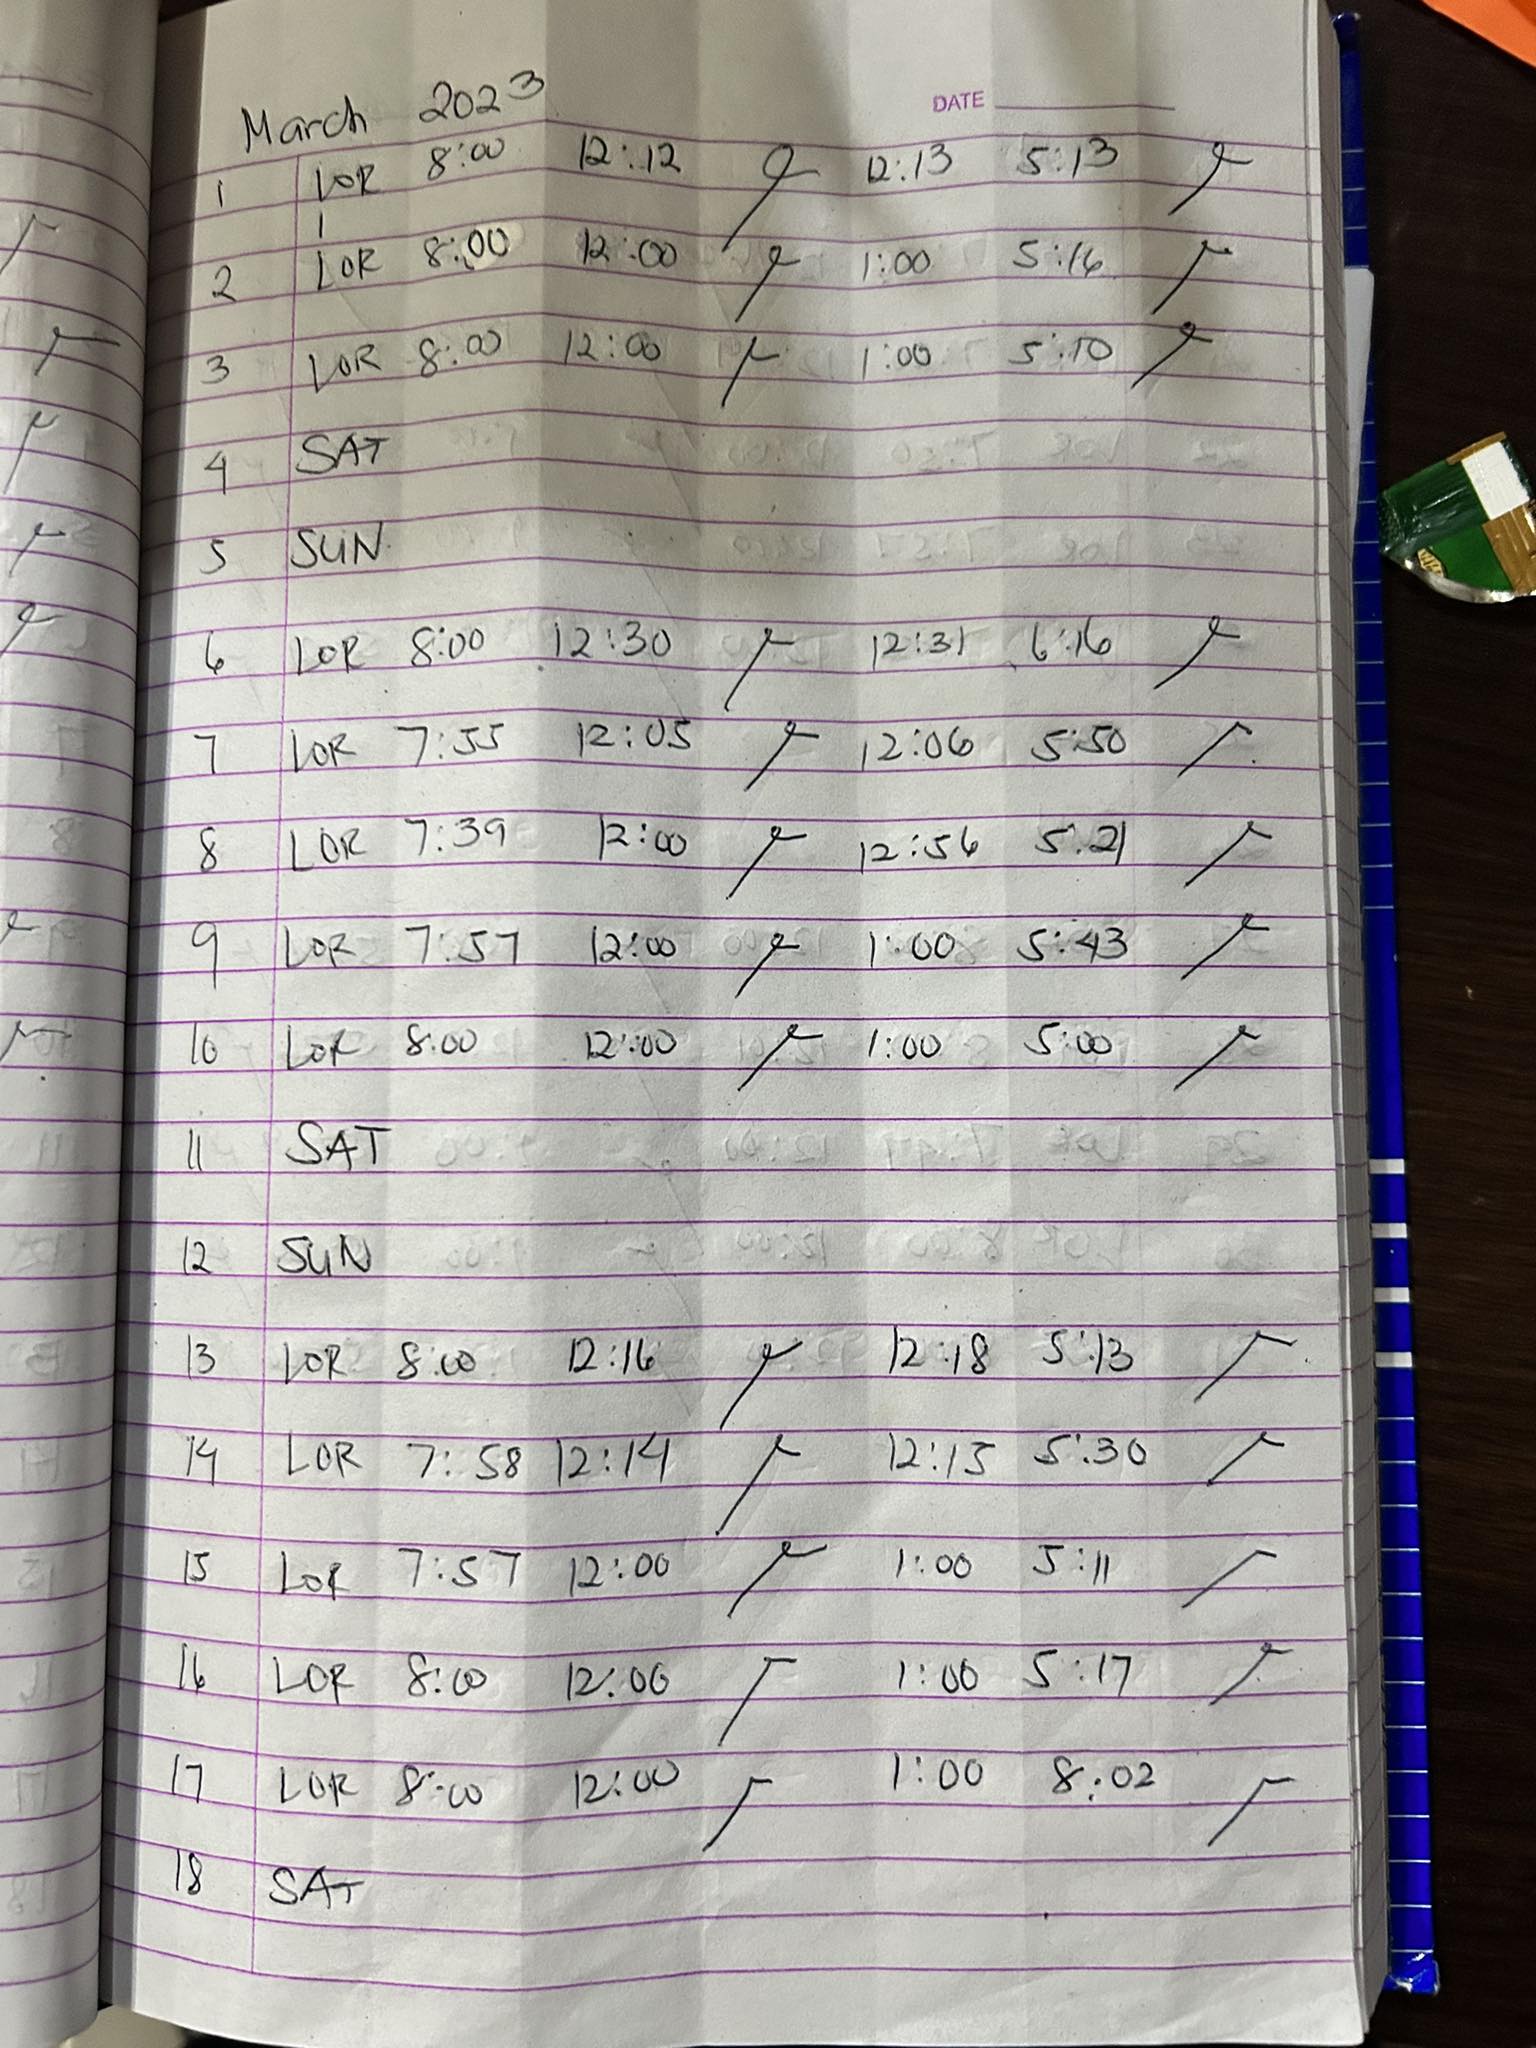 March 2023
DATE
1 LOR 8:00 12:12 12:13 5:13
2 LOR 8:00 12:00 1:00 5:16
3 LOR 8:00 12:00 1:00 5:10
4 SAT
5 SUN
6 LOR 8:00 12:30 12:31 6:16
7 LOR 7:55 12:05 12:06 5:50
8 LOR 7:39 12:00 12:56 5:21
9 LOR 7:57 12:00 1:00 5:43
10 LOR 8:00 12:00 1:00 5:00
11 SAT
12 SUN
13 LOR 8:00 12:16 12:18 5:13
14 LOR 7:58 12:14 12:15 5:30
15 LOR 7:57 12:00 1:00 5:11
16 LOR 8:00 12:00 1:00 5:17
17 LOR 8:00 12:00 1:00 8:02
18 SAT